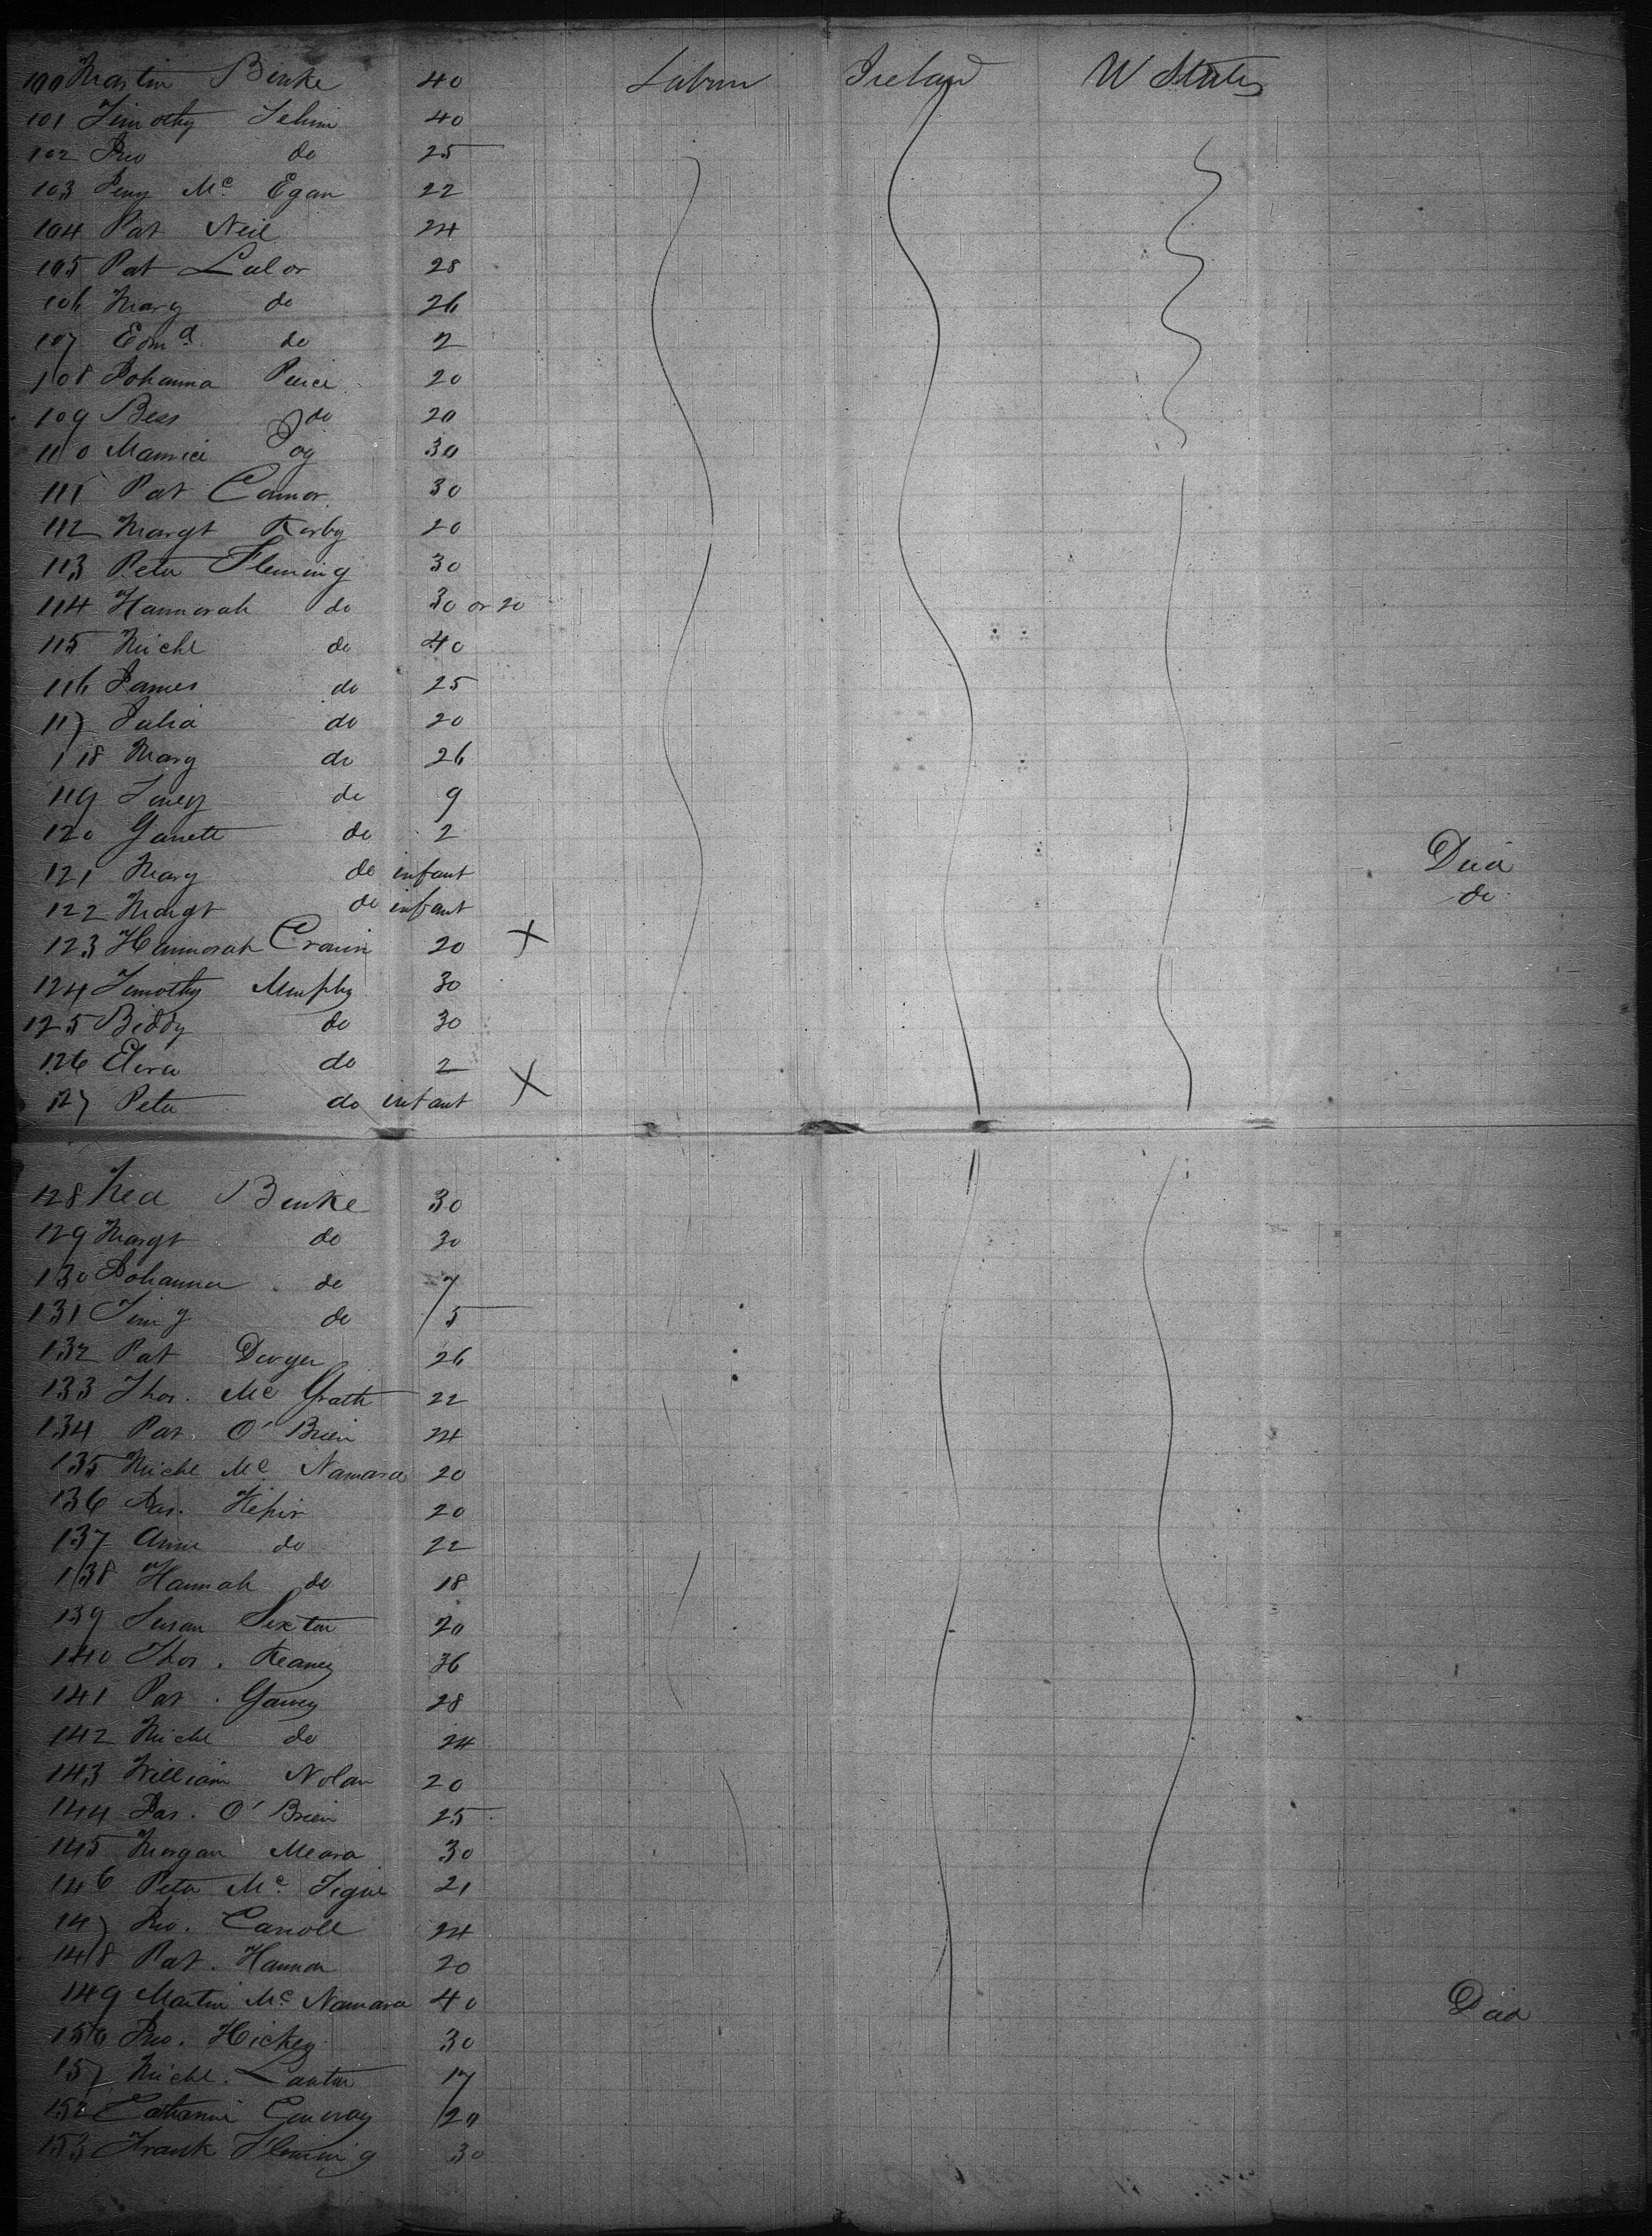 100 Martin Burke 40 Labour Ireland U States
101 Timothy 40
102 Jno do 25
103 Mc Egan 22
104 Pat Neil 24
105 Pat Lalor 28
106 Mary do 26
107 Edmd. do 2
108 Johanna Peirce 20
109 Bess do 20
110 Maurice Joy 30
111 Pat Connor 30
112 Margt Kirby 20
113 Peter Fleming 30
114 Hannorah do 30 or 20
115 Michl do 40
116 James do 25
117 Julia do 20
118 Mary do 26
119 do 9
120 Garrett do 2
121 Mary do infant Died
122 Margt do infant do
123 Hannorah Cronin 20 X
124 Timothy Murphy 30
125 Biddy do 30
126 do 2
127 Peter do infant X
128 Ned Burke 30
129 Margt do 30
130 Johanna do 7
131 do 5
132 Pat Dwyer 26
133 Thos. Mc Grath 22
134 Pat. O' Brien 24
135 Michl Mc Namara 20
136 Jas. 20
137 Anne do 22
138 Hannah do 18
139 Susan Sexton 20
140 Thos. Keaney 36
141 Pat. 28
142 Michl do 24
143 William Nolan 20
144 Jas. O' Brien 25
145 Morgan Meara 30
146 Peter Mc. Tigue 21
147 Jno. Carroll 24
148 Pat. Hannon 20
149 Martin Mc Namara 40 Died
150 Jno. Hickey 30
151 Michl. 17
152 Catharine Conway 20
153 Frank Fleming 30